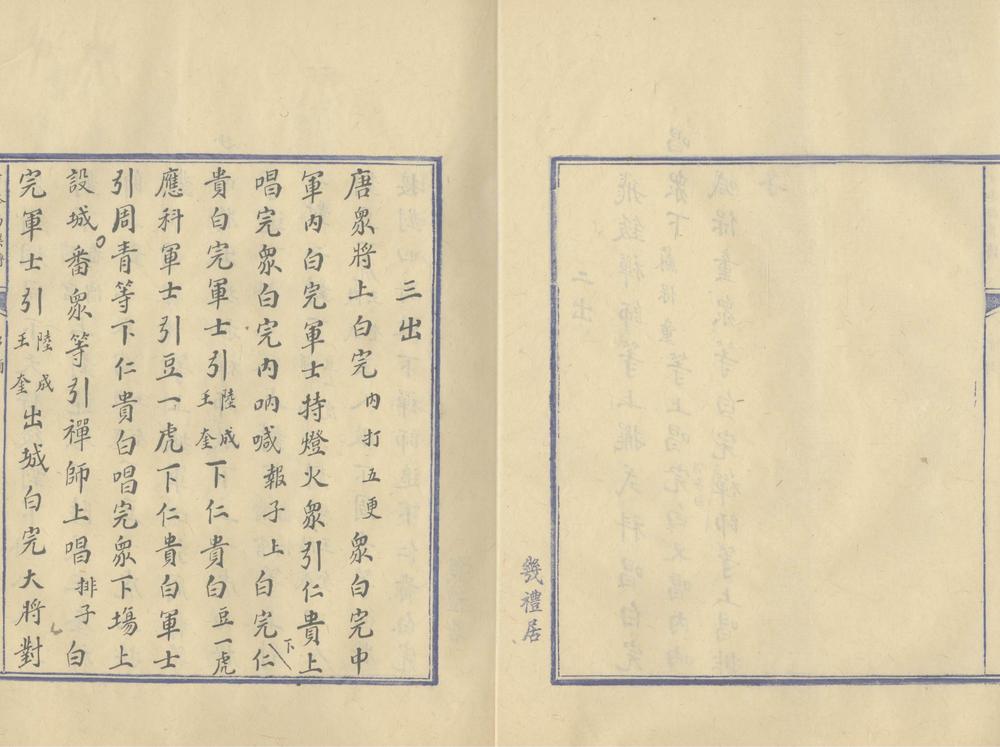 幾禮居
三出
唐衆將上白完内打五更衆白完中
軍内白完軍士持燈火衆引仁貴上
唱完衆白完内吶喊報子上白完仁下
貴白完軍士引陸成王奎下仁貴白豆一虎
應科軍士引豆一虎下仁貴白軍士
引周青等下仁貴白唱完衆下場上
設城番衆等引禪師上唱排子白
完軍士引陸成王奎出城白完大將對